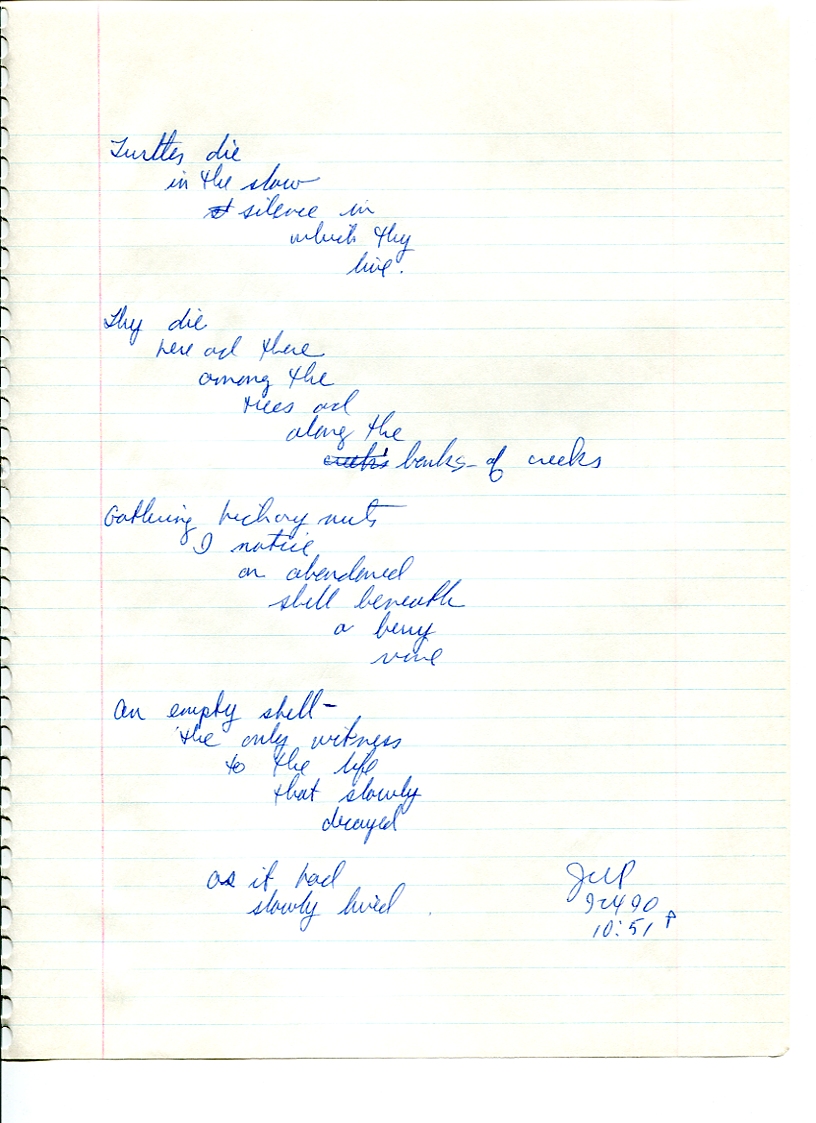 Turtles die
in the slow
silence in
which thy
live.
Thy die
here ad there
among the
trees ad
along the
creek's banks of creeks
Gathering hickory nuts
I notice
an abandoned
shell beneath
a berry
vine
An empty shell-
the only witness
to the life
that slowly
decayed
as it had
slowly lived
92490
10:51 P